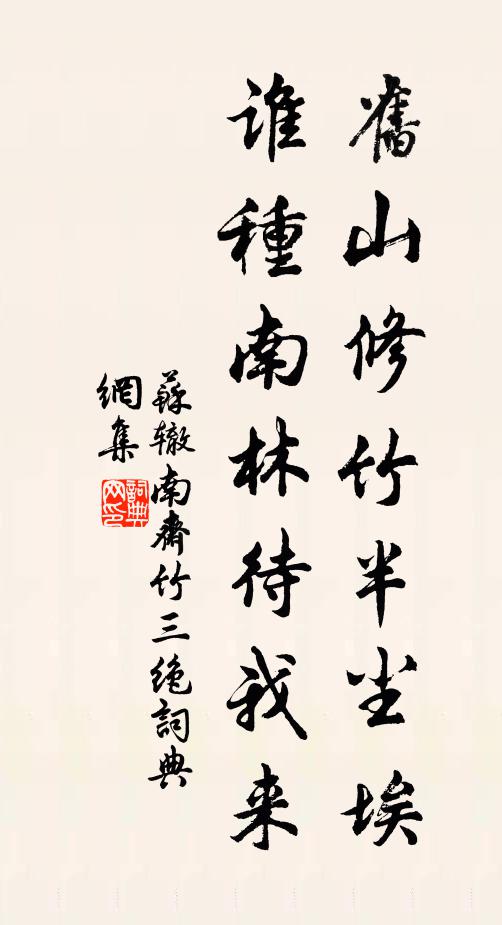 舊山修竹半尘埃
谁種南林待我来
蘇辙南齋竹三绝詞典
網集
詞典
网印